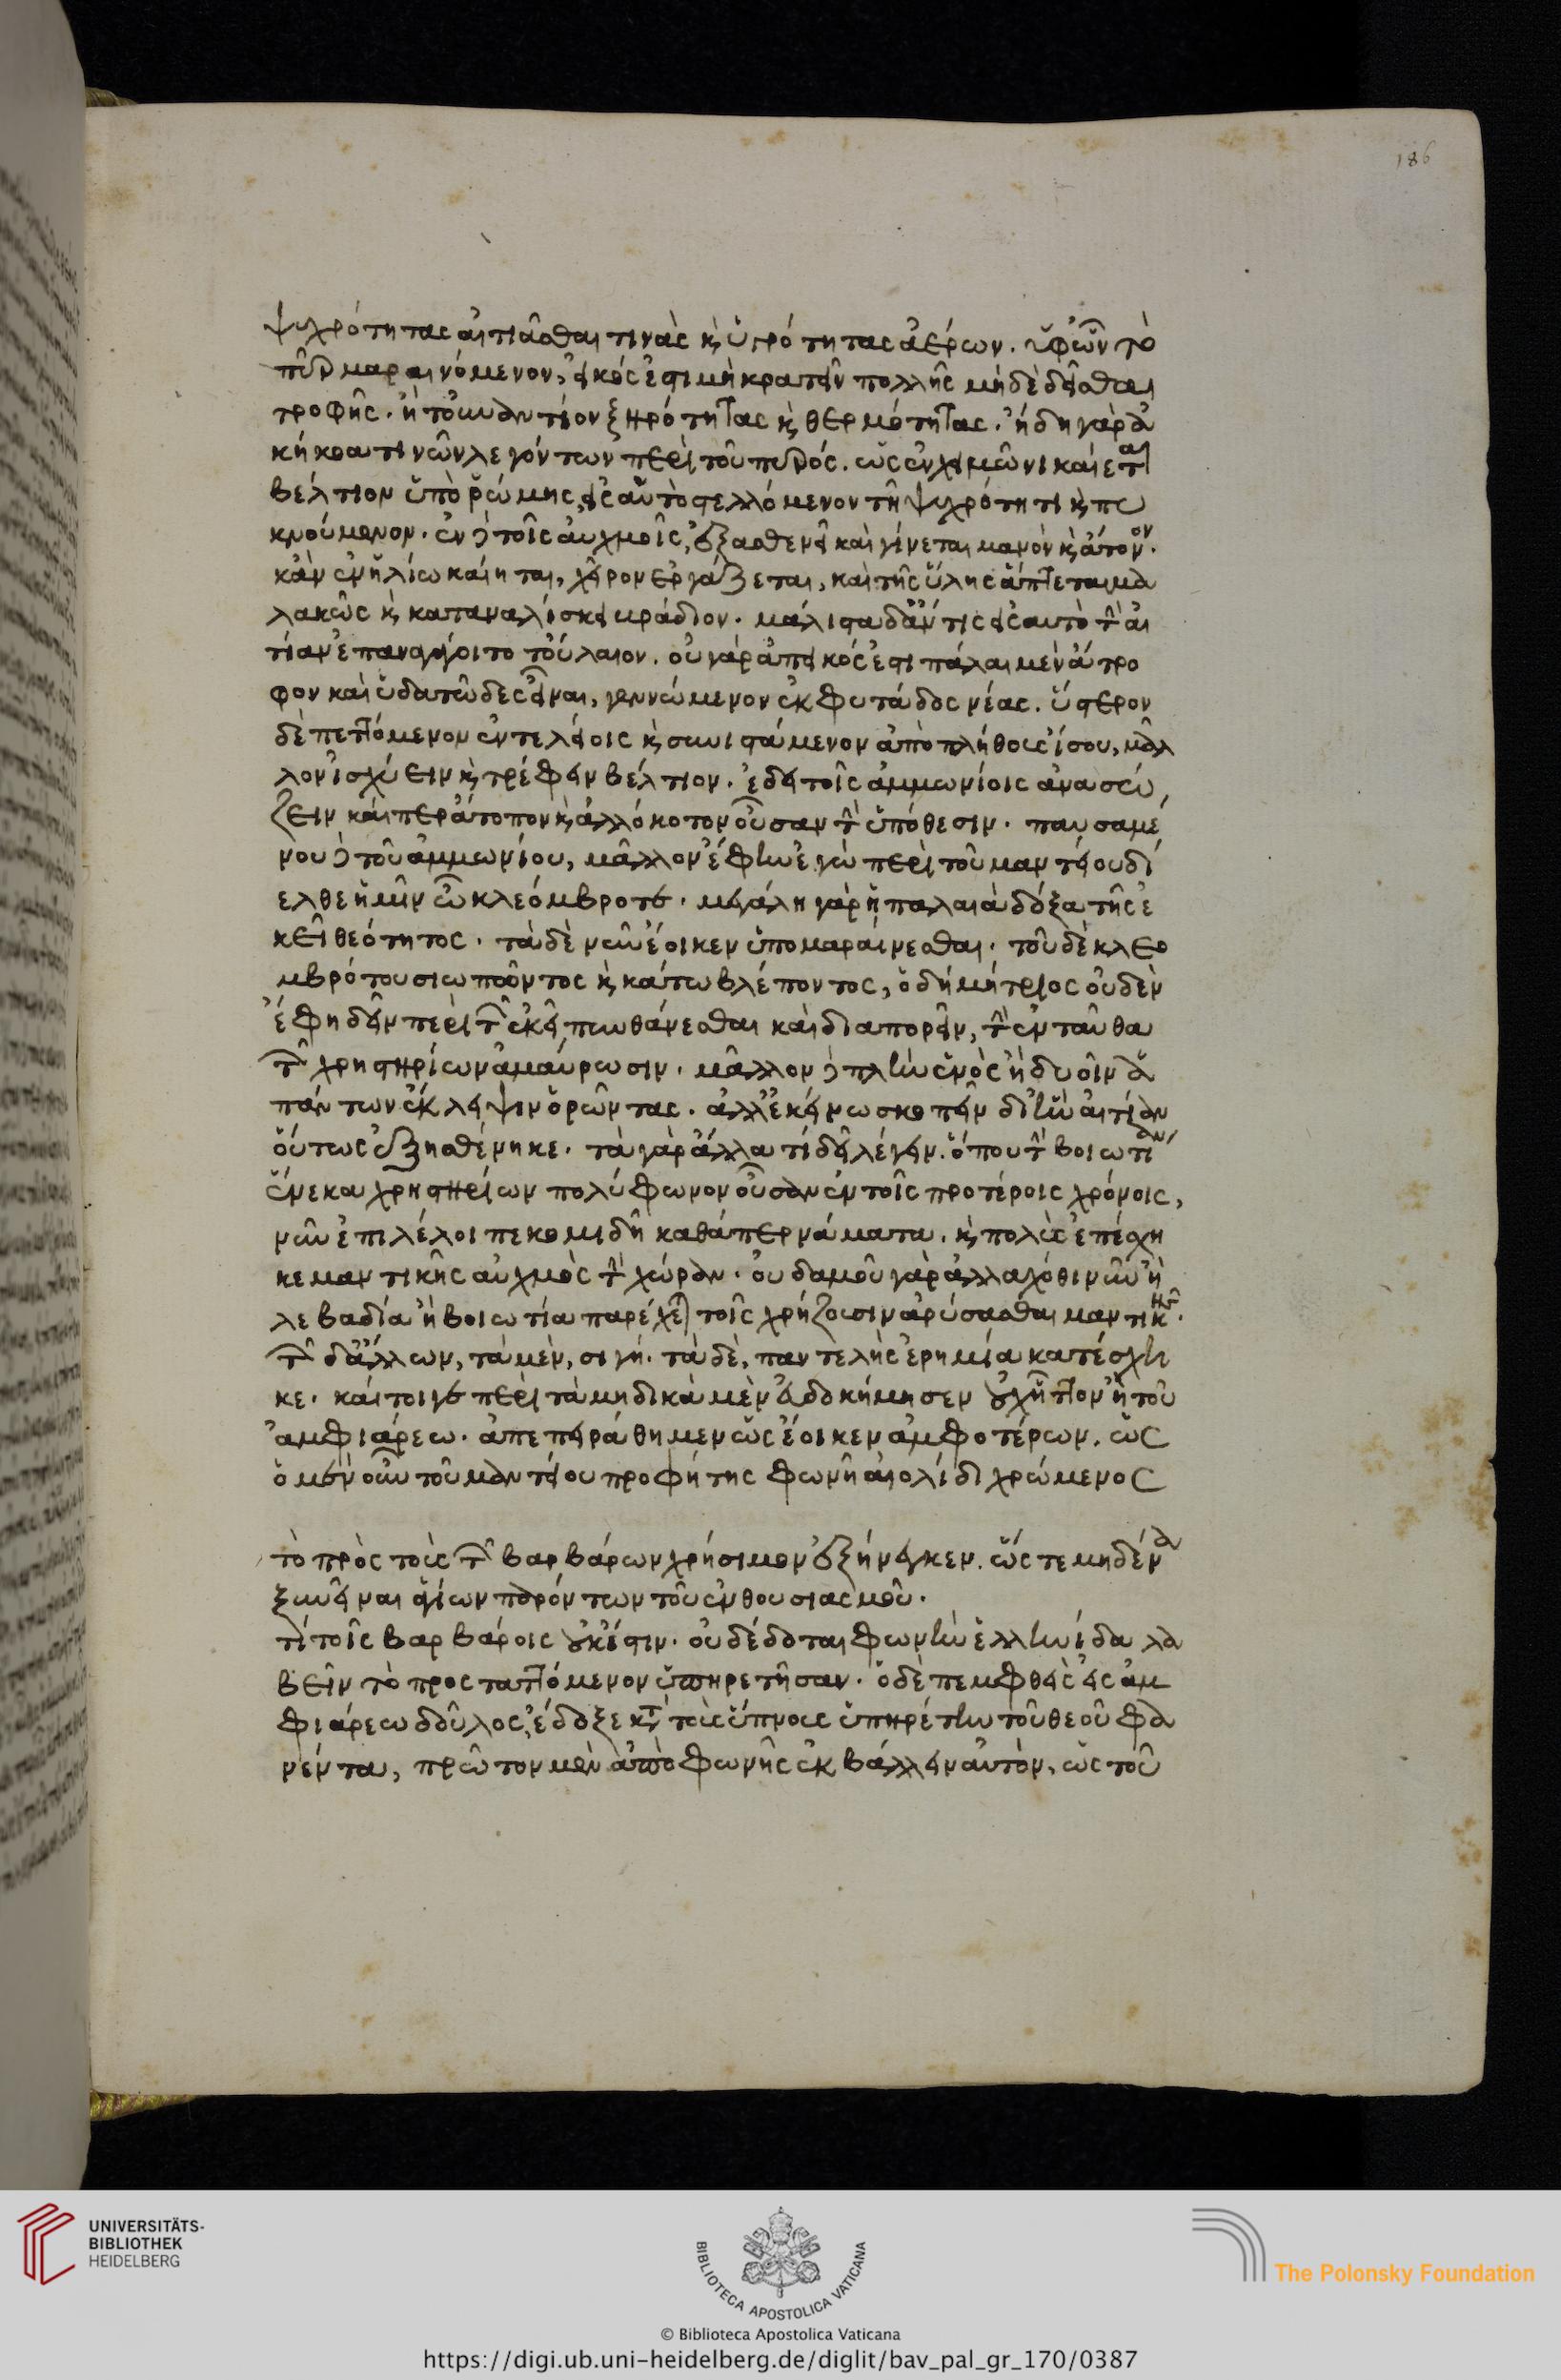 186
ψυχρότητας αἰτιᾶσθαι τινὰς κὶ ὑγρότητας ἀέρων. ὑφ' ὧν τὸ
πῦρ μαραινόμενον, εἰκός ἐστι μὴ κρατεῖν πολλῆς μηδὲ δεῖσθαι
τροφῆς. ἢ τοὐναντίον ξηρότητας κὶ θερμότητας. ἤδη γὰρ ἀ
κήκοα τινῶν λεγόντων περὶ τοῦ πυρός. ὡς ἐν χειμῶνι καίεται
βέλτιον ὑπὸ ῥώμης, εἰς αὑτὸ στελλόμενον τῆ ψυχρότητι κὶ πυ
κνούμενον. ἐν δὲ τοῖς αὐχμοῖς, ἐξασθενεῖ καὶ γίνεται μανὸν κὶ ἄτονον.
κἂν ἐν ἡλίω καίηται, χεῖρον ἐργάζεται, καὶ τῆς ὕλης ἅπτεται μα
λακῶς κὶ καταναλίσκει βράδιον. μάλιστα δ' ἄν τις εἰς αυτὸ τὴν αἰ
τίαν ἐπαναφέροιτο τοὔλαιον. οὐ γὰρ ἀπεικός ἐστι πάλαι μὲν ἄτρο
φον καὶ ὑδατῶδες εἶναι, γεννώμενον ἐκ φυτάδος νέας. ὕστερον
δὲ πεττόμενον ἐν τελείοις κὶ συνιστάμενον ἀπὸ πλήθους ἴσου, μᾶλ
λον ἰσχύειν κὶ τρέφειν βέλτιον. εἰ δεῖ τοῖς ἀμμωνίοις ἀνασώ
ζειν καίπερ ἄτοπον κὶ ἀλλόκοτον οὖσαν τὴν ὑπόθεσιν. παυσαμέ
νου δὲ τοῦ ἀμμωνίου, μᾶλλον ἔφην ἐγὼ περὶ τοῦ μαντείου δί
ελθε ἡμῖν ὦ κλεόμβροτε. μεγάλη γὰρ ἡ παλαιὰ δόξα τῆς ἐ
κεῖ θεότητος. τὰ δὲ νῦν ἔοικεν ὑπομαραίνεσθαι. τοῦ δὲ κλεο
μβρότου σιωπῶντος κὶ κάτω βλέποντος, ὁ δημήτριος οὐδὲν
ἔφη δεῖν περὶ τῶν ἐκεῖ πυνθάνεσθαι καὶ διαπορεῖν, τὴν ἐνταῦθα
τῶν χρηστηρίων ἀμαύρωσιν. μᾶλλον δὲ πλὴν ἑνὸς ἢ δυοῖν ἁ
πάντων ἔκλειψιν ὁρῶντας. ἀλλ' ἐκεῖνω σκοπεῖν δι' ἣν αἰτίαν
οὕτως ἐξησθένηκε. τὰ γὰρ ἄλλα τί δεῖ λέγειν. ὅπου τὴν βοιωτίαν
ἕνεκα χρηστηρίων πολύφωνον οὖσαν ἐν τοῖς προτέροις χρόνοις,
νῦν ἐπιλέλοιπε κομιδῆ καθάπερ νάματα. κὶ πολὺς ἐπέσχη
κε μαντικῆς αὐχμὸς τὴν χώραν. οὐδαμοῦ γὰρ ἀλλαχόθι νῦν ἢ
λεβαδία ἡ βοιωτία παρέχει τοῖς χρήζουσιν ἀρύσασθαι μαντικῆς.
τῶν δ' ἄλλων, τὰ μὲν, σιγή. τὰ δὲ, παντελὴς ἐρημία κατέσχη
κε. καίτοιγε περὶ τὰ μηδικὰ μὲν εὐδοκήμησεν οὐχ ἧττον ἢ τοῦ
ἀμφιάρεω. ἀπεπειράθη μεν ὡς ἔοικεν ἀμφοτέρων. ὡς
ὁ μὲν οὖν τοῦ μαντείου προφήτης φωνῆ αἰολίδι χρώμενος
τὸ πρὸς τοὺς τῶν βαρβάρων χρήσιμον ἐξήνεγκεν. ὥς τε μηδένα
ξυνεῖναι ἁγίων παρόντων τοῦ ἐνθουσιασμοῦ.
τί τοῖς βαρβάροις οὐκ ἔστιν. οὐ δέδοται φωνὴν ἑλληνίδα λα
βεῖν τὸ προσταττόμενον ὑπηρετῆσαν. ὁ δὲ πεμφθεὶς εἰς ἀμ
φιάρεω δοῦλος, ἔδοξε κατὰ τοὺς ὕπνους ὑπηρέτην τοῦ θεοῦ φα
νέντα, πρῶτον μὲν ἀπὸ φωνῆς ἐκβάλλειν αὐτὸν, ὡς τοῦ
UNIVERSITÄTS-
BIBLIOTHEK
HEIDELBERG
BIBLIOTECA APOSTOLICA VATICANA
The Polonsky Foundation
© Biblioteca Apostolica Vaticana
https://digi.ub.uni-heidelberg.de/diglit/bav_pal_gr_170/0387